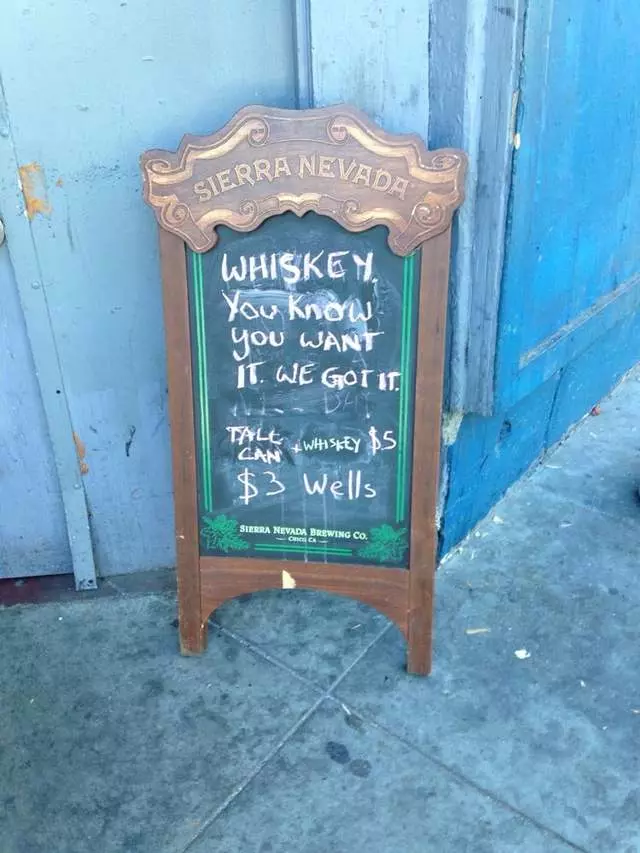 SIERRA NEVADA
WHISKEY.
You Know
you WANT
IT. WE GOT IT.
TALL
CAN + WHISKEY $5
$3 Wells
SIERRA NEVADA BREWING CO.
CHICO CA